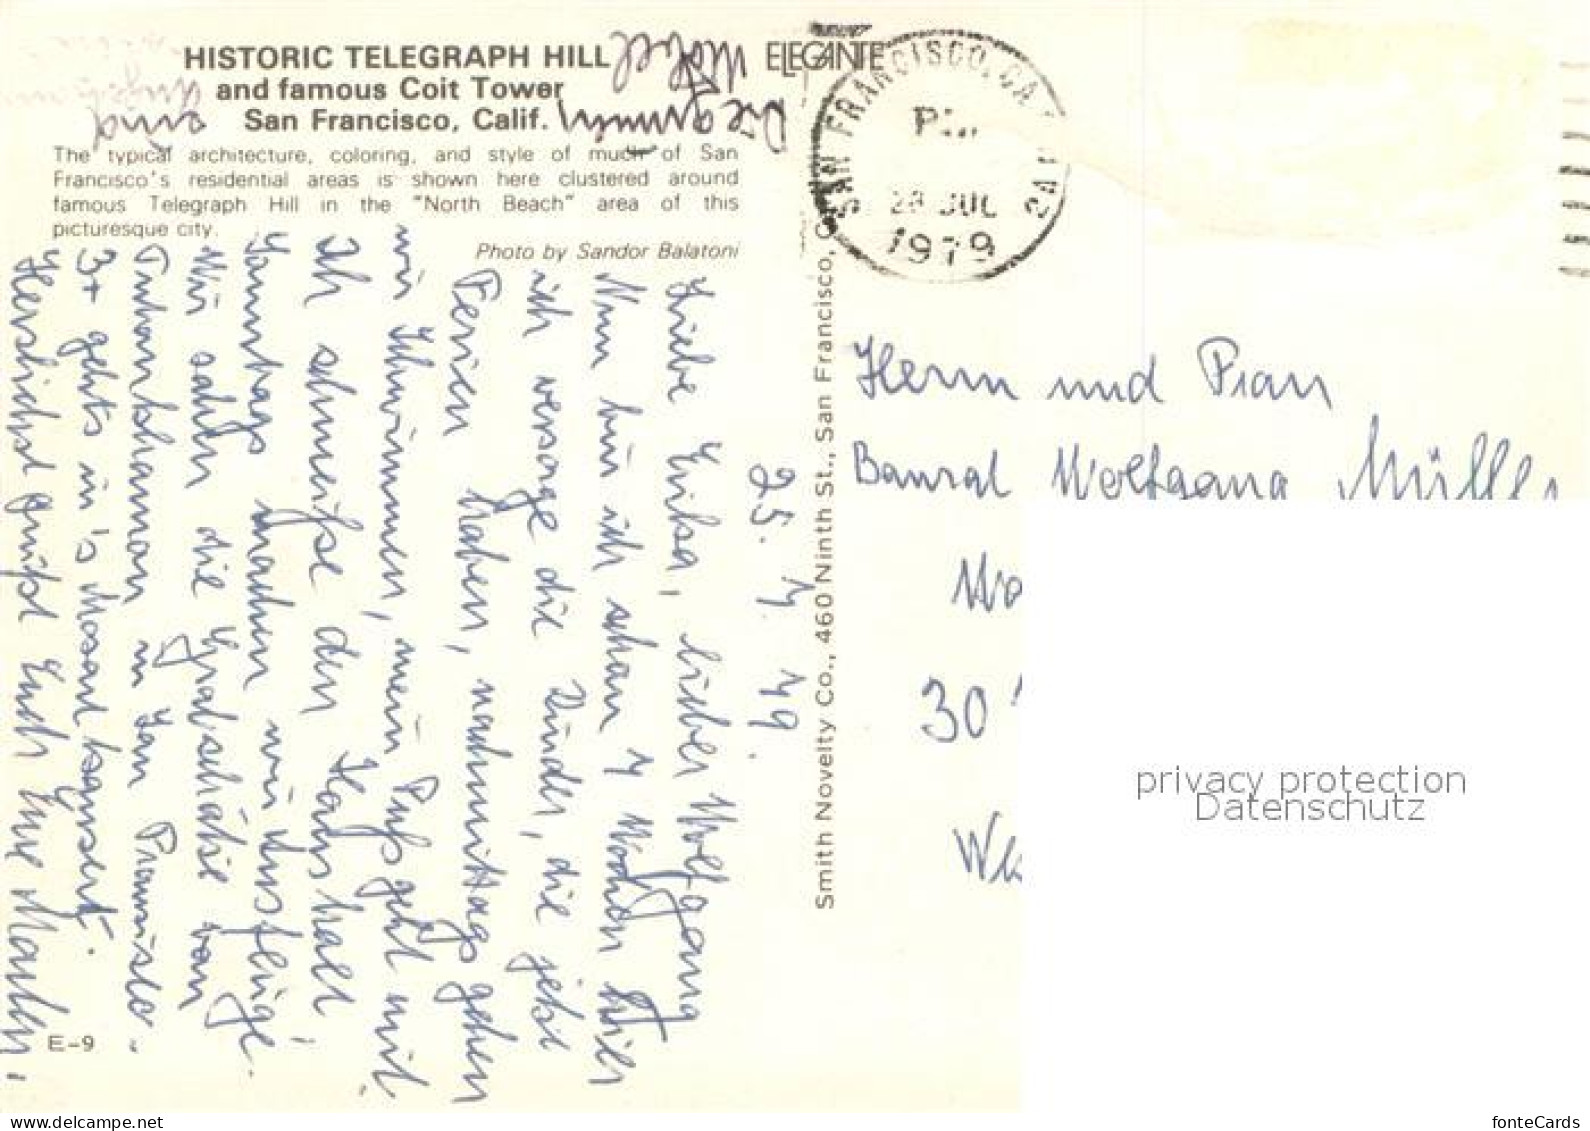 HISTORIC TELEGRAPH HILL
and famous Coit Tower
San Francisco, Calif.
The typical architecture, coloring, and style of much of San
Francisco's residential areas is shown here clustered around
famous Telegraph Hill in the "North Beach" area of this
picturesque city.
Photo by Sandor Balatoni
ELEGANTE
SAN FRANCISCO, CA
PM
28 JUL
1979
Smith Novelty Co., 460 Ninth St., San Francisco,
25. 7. 79.
Liebe Erika, lieber Wolfgang
Nun bin ich schon 4 Wochen hier
ich versorge die Kinder, die jetzt
Ferien haben, nachmittags gehen
wir schwimmen, mein Fuß geht mit.
Ich schmeiße den Haushalt
Sonntags machen wir Ausflüge.
Wir sahen die Grabschätze von
Tutankhamon in San Francisco.
3x gehts in's Mozartkonzert.
Herzlichst grüßt Euch Eure
und
Herrn und Frau
Baurat Wolfgang Müller
30
privacy protection
Datenschutz
E-9
www.delcampe.net
fonteCards